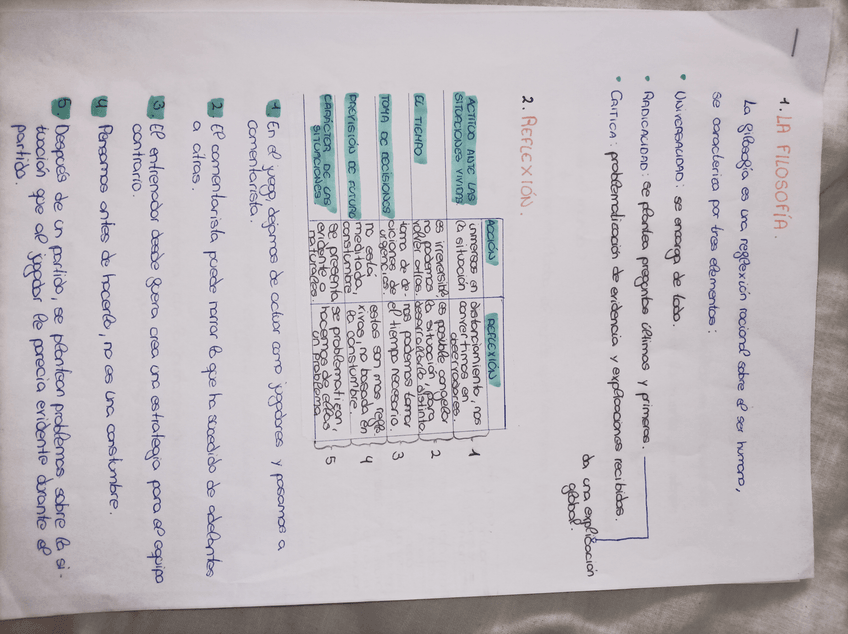 1. LA FILOSOFÍA.
La filosofía es una reflexión racional sobre el ser humano,
se caracteriza por tres elementos:
• UNIVERSALIDAD: se encarga de todo.
• RADICALIDAD: se plantea preguntas últimas y primeras.
• CRÍTICA: problematización de evidencia y explicaciones recibidas.
da una explicación
global.
2. REFLEXIÓN.
ACCIÓN
REFLEXIÓN
ACTITUD ANTE LAS
SITUACIONES VIVIDAS
inmersos en
la situación
distanciamiento, nos
convertimos en
observadores.
1
EL TIEMPO
es irreversible,
no podemos
volver atrás.
es posible congelar
la situación, para
desarrollarlo distinto.
2
TOMA DE DECISIONES
toma de de-
cisiones de
urgencias.
nos podemos tomar
el tiempo necesario
3
PREVISIÓN DE FUTURO
no está
meditada,
constumbre
estas son más refle-
xivas, no basada en
la constumbre.
4
CARÁCTER DE LAS
SITUACIONES
se presenta
evidente o
naturales.
se problematizan,
hacemos de ellas
un problema
5
1. En el juego, dejamos de actuar como jugadores y pasamos a
comentarista.
2. El comentarista puede narrar lo que ha sucedido de adelantes
a atras.
3. El entrenador desde fuera crea una estrategia para el equipo
contrario.
4. Pensamos antes de hacerlo, no es una constumbre.
5. Después de un partido, se plantean problemas sobre la si-
tuación que al jugador le parecía evidente durante el
partido.